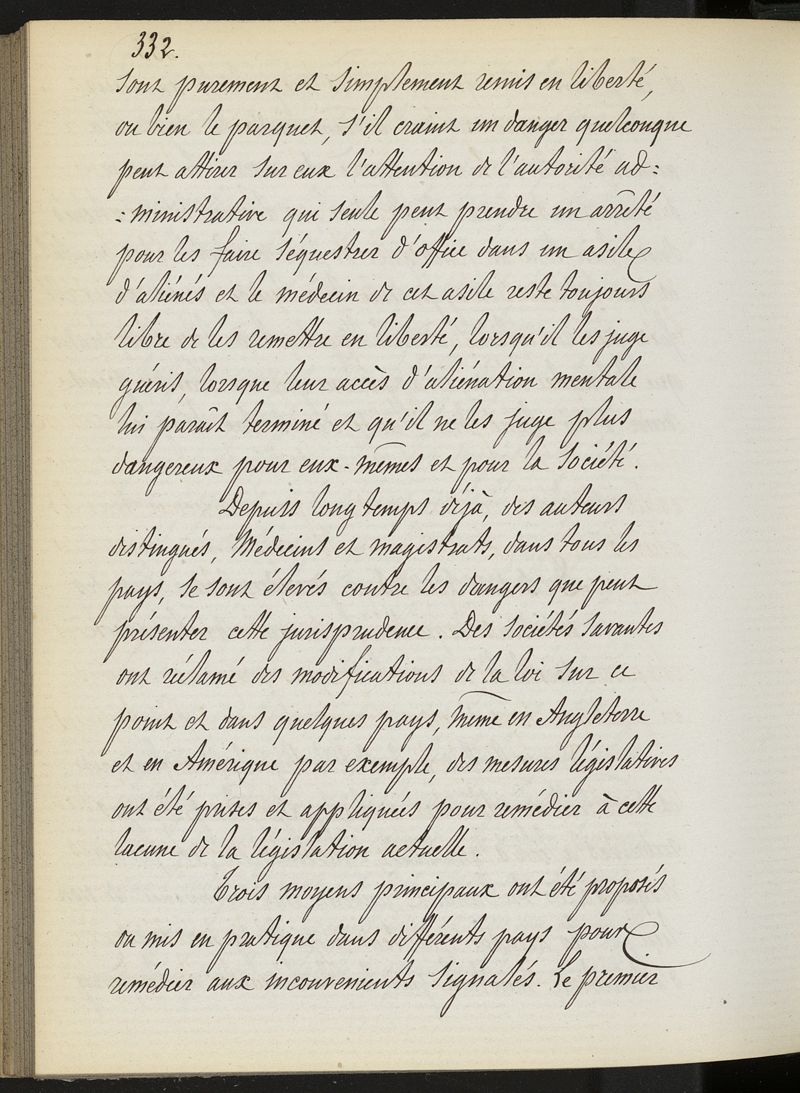 332.
sont purement et simplement remis en liberté,
ou bien le parquet, s'il craint un danger quelconque
peut attirer sur eux l'attention de l'autorité ad=
=ministrative qui seule peut prendre un arrêté
pour les faire séquestrer d'office dans un asile
d'aliénés et le médecin de cet asile reste toujours
libre de les remettre en liberté, lorsqu'il les juge
guéris, lorsque leur accès d'aliénation mentale
lui paraît terminé et qu'il ne les juge plus
dangereux pour eux-mêmes et pour la société.
Depuis longtemps déjà, des auteurs
distingués, Médecins et magistrats, dans tous les
pays, se sont élevés contre les dangers que peut
présenter cette jurisprudence. Des sociétés savantes
ont réclamé des modifications de la loi sur ce
point et dans quelques pays, même en Angleterre
et en Amérique par exemple, des mesures législatives
ont été prises et appliquées pour remédier à cette
lacune de la législation actuelle.
Trois moyens principaux ont été proposés
ou mis en pratique dans différents pays pour
remédier aux inconvenients signalés. Le premier